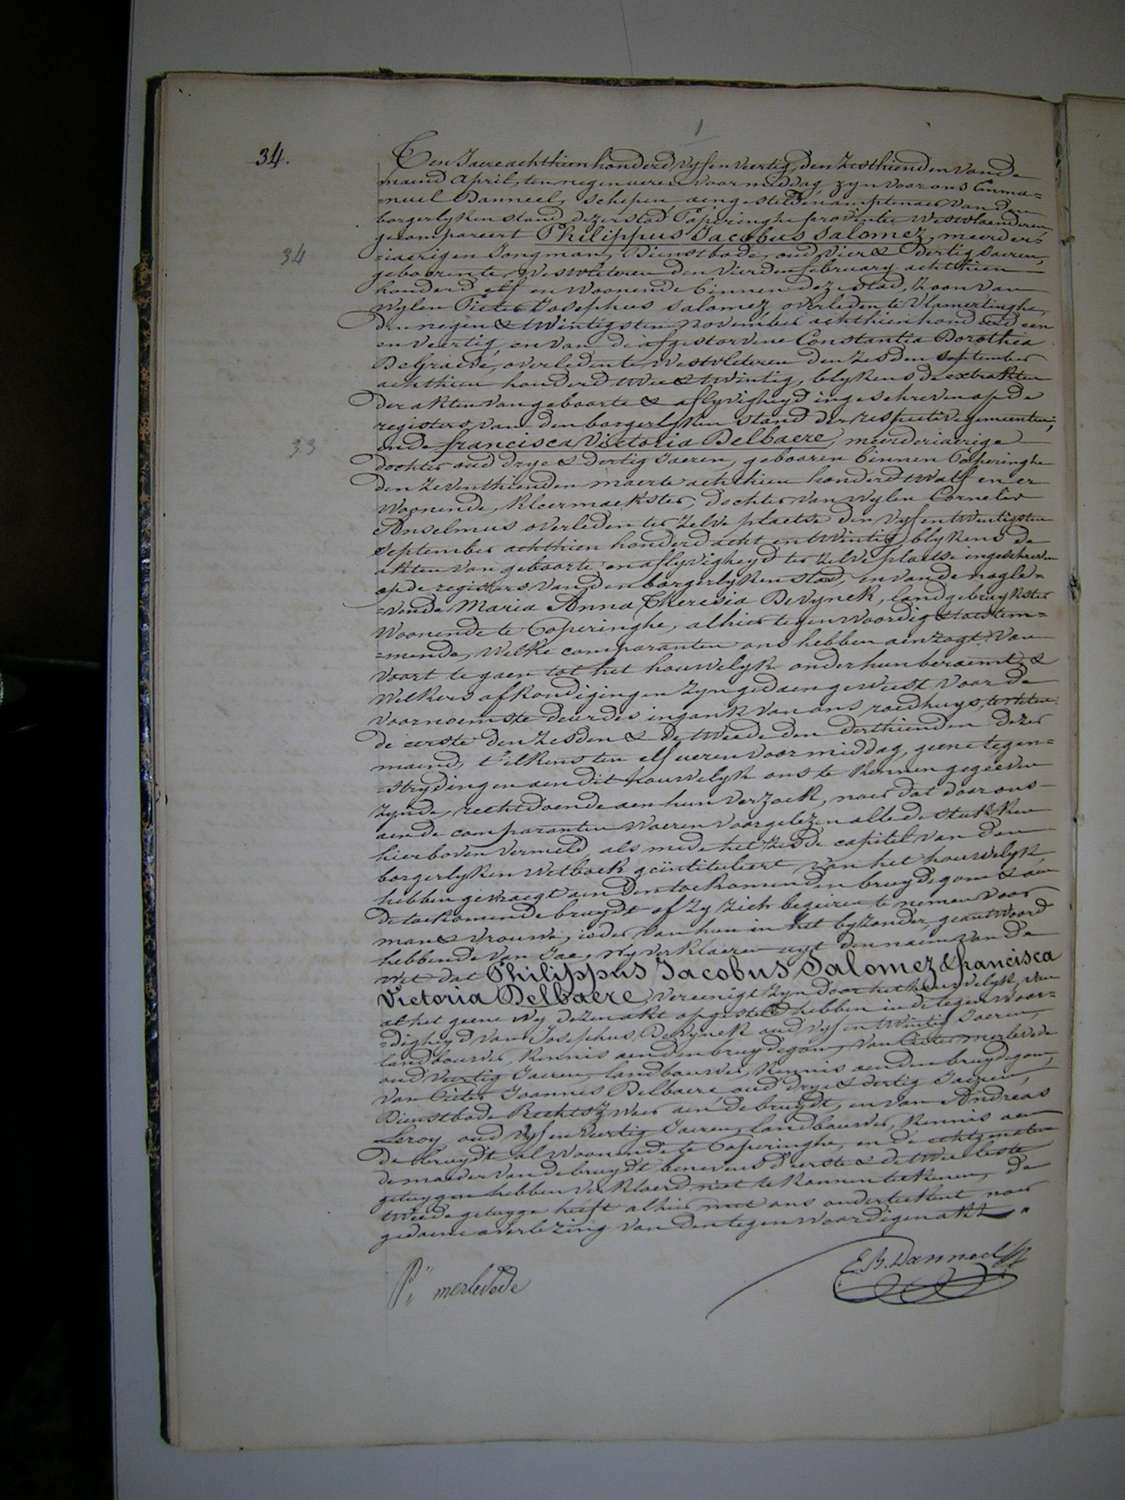 34.
Den Jaere achthien honderd vyf en veertig, den zesthienden van de
maend April, ten negen ueren voormiddag, zyn voor ons Emma-
nuel Danneel, Schepen aengesteld en amptenaer van den
borgerlyken stand dezer stad Poperinghe provintie Westvlaenderen
gecompareert Philippus Jacobus Salomez, meerder-
34
iaerigen Jongman, Dienstbode, oud vier & dertig Jaeren,
gebooren te Westvleteren den vierden february achthien
honderd elf en woonende binnen deze stad, Zoon van
wylen Pieter Josephus Salomez overleden te Vlamertinghe
den negen & twintigsten november achthien honderd een
en veertig en van de afgestorvene Constantia Dorothea
De Graeve, overleden te Westvleteren den zesden september
achthien honderd twee & twintig, blykens de extrakten
der akten van geboorte & aflyvigheyd ingeschreven op de
registers van den borgerlyken stand der respective gemeenten;
33
ende francisca Victoria Delbaere, meerderiaerige
dochter oud drye & dertig Jaeren, gebooren binnen Poperinghe
den zeventhienden maerte achthien honderd twalf en er
woonende, kleermaekster, dochter van wylen Cornelis
Anselmus overleden ter zelve plaetse den vyf en twintigsten
september achthien honderd acht en twintig, blykens de
akten van geboorte en aflyvigheyd ter zelve plaetse ingeschreven
op de registers van den borgerlyken stand en van de nagela-
-vende Maria Anna Theresia Devynck, landgebruykster
woonende te Poperinghe, alhier tegenwoordig & toestem-
-mende, Welke comparanten ons hebben aenzogt van
voort te gaen tot het houwelyk onder hun beraemt, &
welkers afkondigingen zyn gedaen geweest voor de
voornaemste deur des ingank van ons raedhuys, te weten:
de eerste den zesden & de tweede den derthienden dezer
maend, t'elkens ten elf ueren voor middag, geene tegen-
-strydingen aen dit houwelyk ons te kennen gegeeven
zynde, rechtdoende aen hun verzoek, naer dat door ons
aen de comparanten waeren voorgelezen alle de stukken
hierboven vermeld als mede het zesde capitel van den
borgerlyken wetboek geïntituleert van het houwelyk,
hebben gevraegt aen den toekomenden bruydegom & aen
de toekomende bruydt of zy zich begeiren te nemen voor
man & vrouwe, ieder van hun in het byzonder geantwoord
hebbende van Jae, wy verklaeren uyt den naem van de
wet dat Philippus Jacobus Salomez & francisca
Victoria Delbaere, vereenigt zyn door het houwelyk, van
al het geene wy dezen akt opgesteld hebben in de tegenwoor-
-digheyd van Josephus Devynck oud vyf en twintig Jaeren,
landbouwer, kennis aen den bruydegom, van Pieter merlevede
oud veertig Jaeren, landbouwer, kennis aen den bruydegom,
van Pieter Joannes Delbaere oud drye & dertig Jaeren,
Dienstbode Rechtszweer aen de bruydt, en van Andreas
Leroy oud vyf en veertig Jaeren, landbouwer, kennis aen
de bruydt al woonende te Poperinghe, en de echtgenoten
de moeder van de bruydt benevens d'eerste & de twee leste
getuygen hebben verklaerd niet te konnen teekenen, de
tweede getuyge heeft alhier met ons onderteekent naer
gedaene overlezing van den tegenwoordigen akt
Pr merlevede
E. B. Danneel